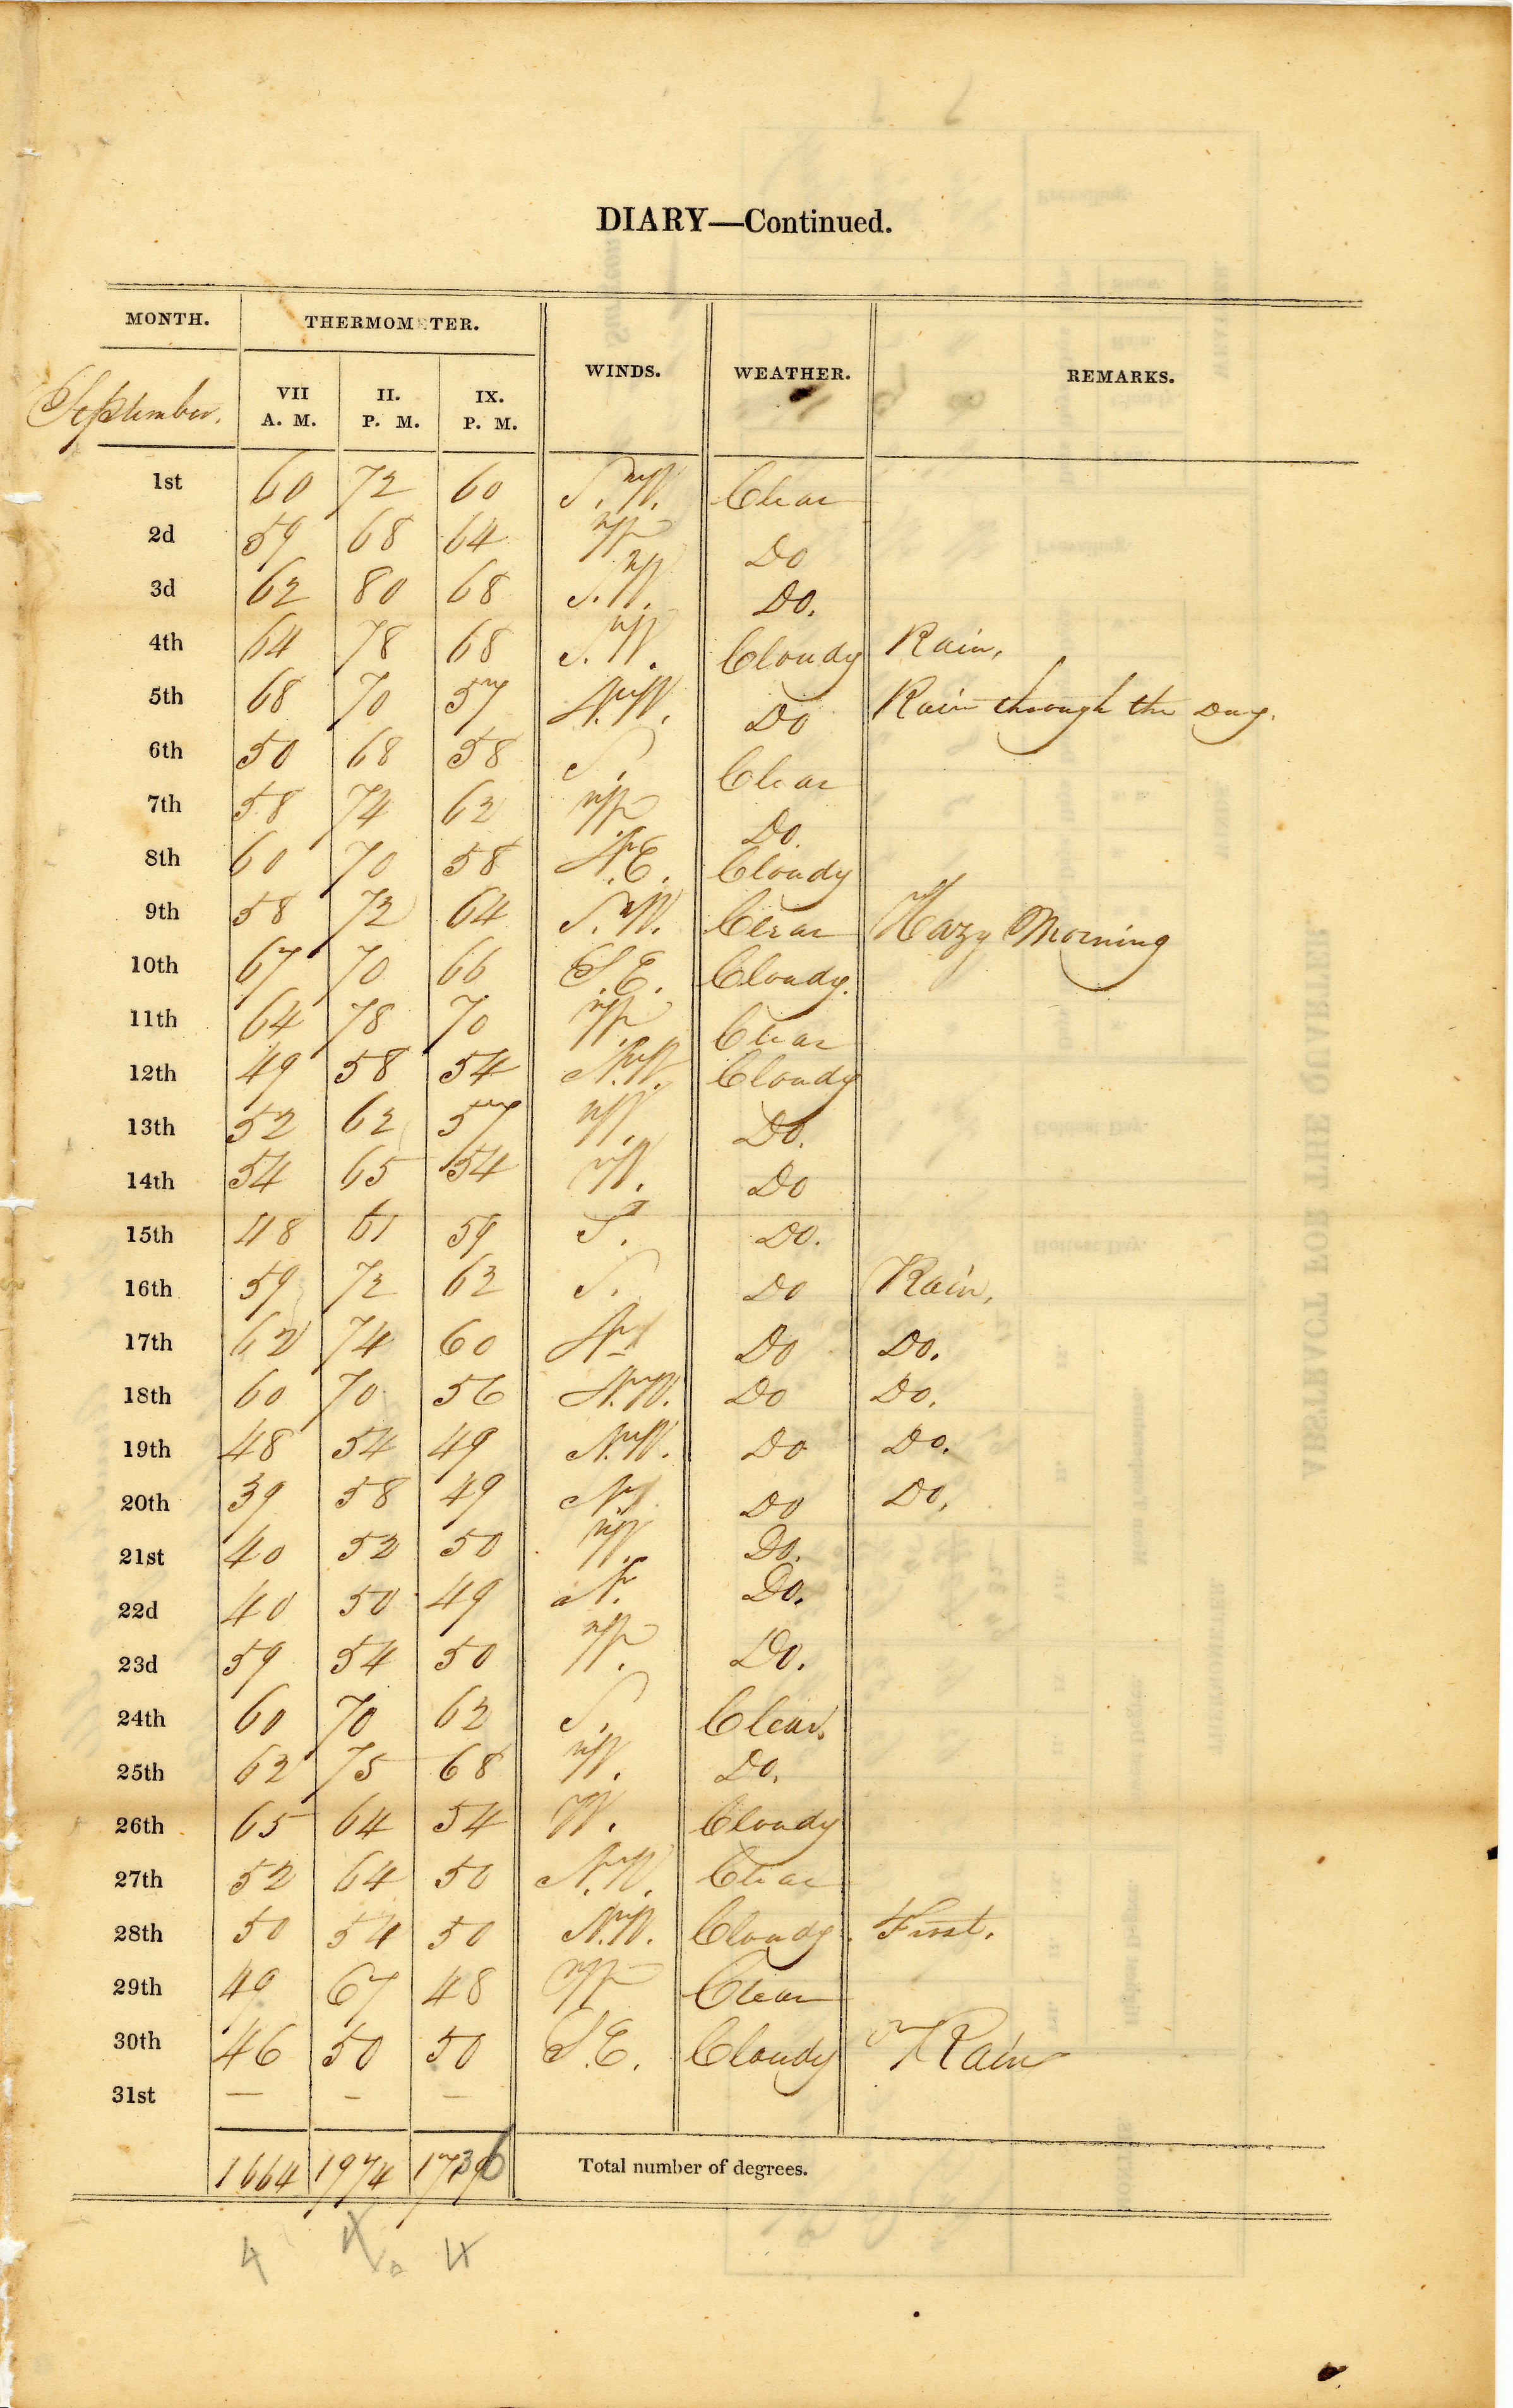 DIARY—Continued.
MONTH. THERMOMETER. WINDS. WEATHER. REMARKS.
September. VII A. M. II. P. M. IX. P. M.
1st 60 72 60 S.W. Clear
2d 59 68 64 W Do
3d 62 80 68 S.W. Do.
4th 64 78 68 S.W. Cloudy Rain.
5th 68 70 57 N.W. Do Rain through the Day.
6th 50 68 58 S. Clear
7th 58 74 62 W Do.
8th 60 70 58 N.E. Cloudy
9th 58 72 64 S.W. Clear Hazy Morning
10th 67 70 66 S.E. Cloudy.
11th 64 78 70 W. Clear
12th 49 58 54 N.W. Cloudy
13th 52 62 57 W. Do.
14th 54 65 54 W. Do
15th 48 61 59 S. Do.
16th 59 72 62 S. Do Rain.
17th 62 74 60 N Do Do.
18th 60 70 56 N.W. Do Do.
19th 48 54 49 N.W. Do Do.
20th 39 58 49 N Do Do.
21st 40 52 50 W. Do.
22d 40 50 49 N. Do.
23d 59 54 50 W. Do.
24th 60 70 62 S. Clear.
25th 62 75 68 W. Do.
26th 65 64 54 W. Cloudy
27th 52 64 50 N.W. Clear
28th 50 54 50 N.W. Cloudy. Frost.
29th 49 67 48 W Clear
30th 46 50 50 S.E. Cloudy Rain
31st — – –
1664 1974 1736 Total number of degrees.
4 4